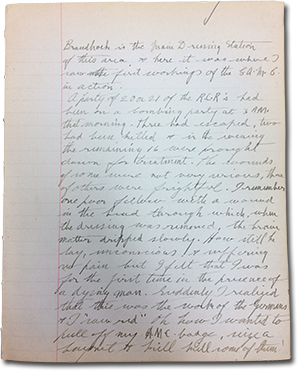 Brandhoek is the Main D-ressing Station
of this area & here it was where I
saw the first workings of the C.A.M.C.
in action.
A party of 20 or 21 of the RCR's had
been on a bombing party at 2 AM
that morning. Three had escaped, two
had been killed & in the evening
the remaining 16 were brought
down for treatment. The wounds
of some were not very serious, those
of others were frightful. I remember
one poor fellow with a wound
in the head through which, when
the dressing was removed, the brain
matter dripped slowly. How still he
lay, unconscious & suffering
no pain but I felt that I was
for the first time in the presence of
a dying man. Suddenly I realized
that this was the work of the Germans
& I saw red. Oh how I wanted to
pull off my AMC badge, seize a
bayonet & kill kill some of them!